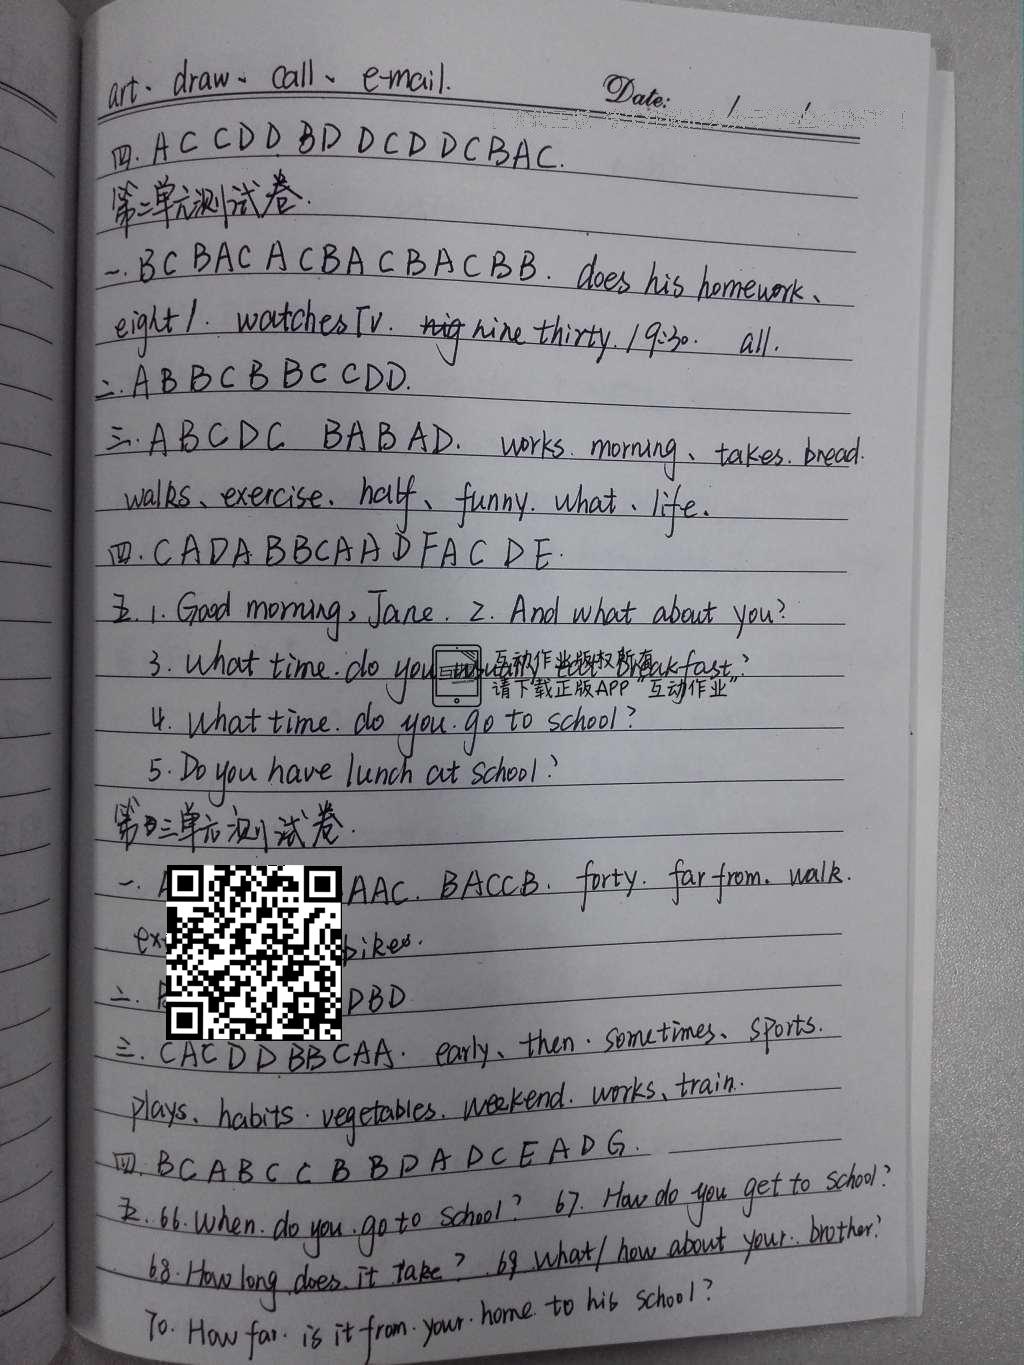 art、draw、call、e-mail.
Date: / /
四. A C C D D B D D C D D C B A C.
第二单元测试卷.
一. B C B A C A C B A C B A C B B. does his homework、
eight /. watches TV. nine thirty. / 9:30. all.
二. A B B C B B C C D D.
三. A B C D C B A B A D. works. morning、takes. bread.
walks、exercise. half、funny. what、life.
四. C A D A B B C A A D F A C D E.
五. 1. Good morning, Jane. 2. And what about you?
3. What time do you usually eat breakfast?
互动作业版权所有
请下载正版APP“互动作业”
4. What time do you go to school?
5. Do you have lunch at school?
第三单元测试卷.
一. A A C. B A C C B. forty. far from. walk.
bikes.
二. D B D
三. C A C D D B B C A A. early、then. sometimes、sports.
plays、habits. vegetables. weekend. works、train.
四. B C A B C C B B D A D C E A D G.
五. 66. When do you go to school? 67. How do you get to school?
68. How long does it take? 69. What / how about your brother?
70. How far is it from your home to his school?